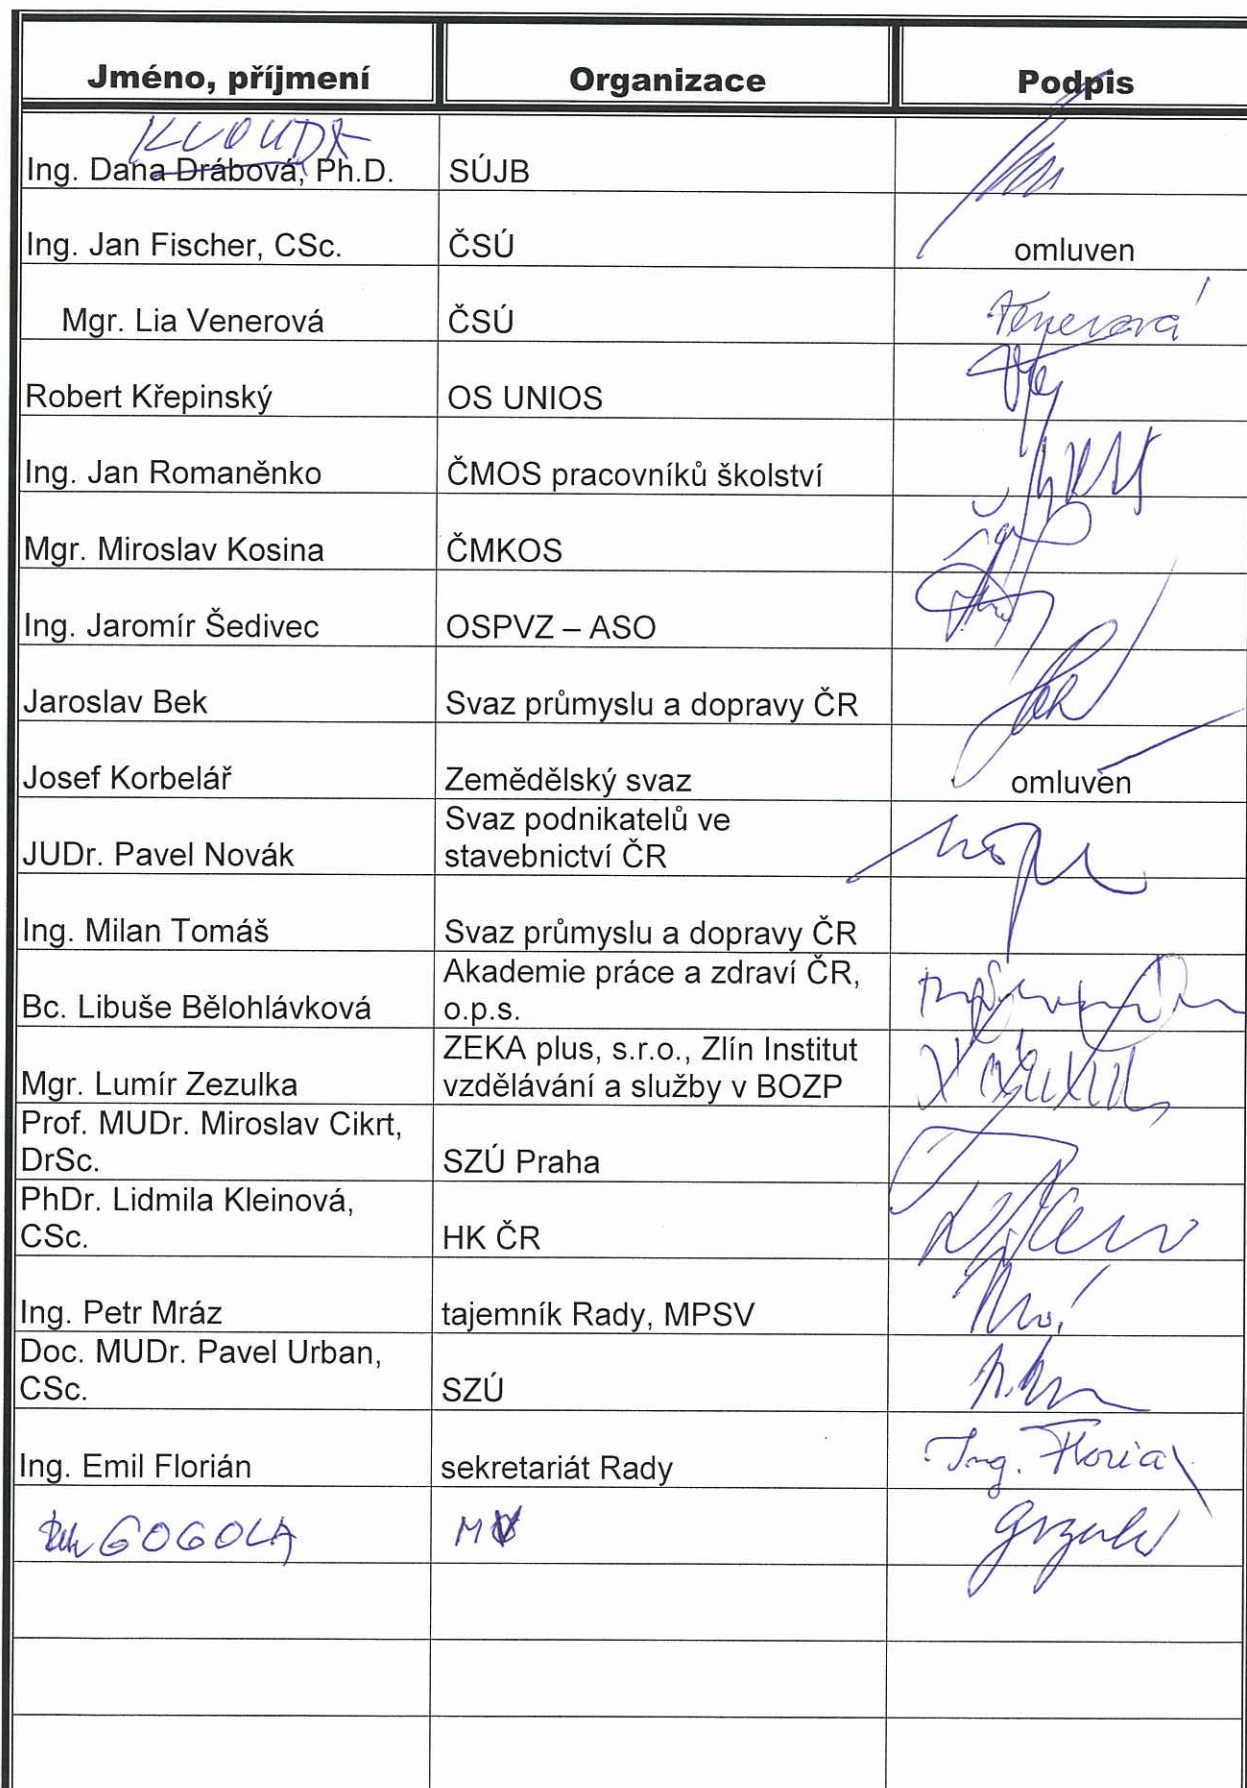 Jméno, příjmení Organizace Podpis
KLOUDA
Ing. Dana Drábová, Ph.D. SÚJB
Ing. Jan Fischer, CSc. ČSÚ omluven
Mgr. Lia Venerová ČSÚ Venerová
Robert Křepinský OS UNIOS
Ing. Jan Romaněnko ČMOS pracovníků školství
Mgr. Miroslav Kosina ČMKOS
Ing. Jaromír Šedivec OSPVZ – ASO
Jaroslav Bek Svaz průmyslu a dopravy ČR Bek
Josef Korbelář Zemědělský svaz omluven
JUDr. Pavel Novák Svaz podnikatelů ve
stavebnictví ČR
Ing. Milan Tomáš Svaz průmyslu a dopravy ČR
Bc. Libuše Bělohlávková Akademie práce a zdraví ČR,
o.p.s.
Mgr. Lumír Zezulka ZEKA plus, s.r.o., Zlín Institut
vzdělávání a služby v BOZP
Prof. MUDr. Miroslav Cikrt,
DrSc. SZÚ Praha
PhDr. Lidmila Kleinová,
CSc. HK ČR
Ing. Petr Mráz tajemník Rady, MPSV
Doc. MUDr. Pavel Urban,
CSc. SZÚ
Ing. Emil Florián sekretariát Rady Ing. Florian
GOGOLA MV